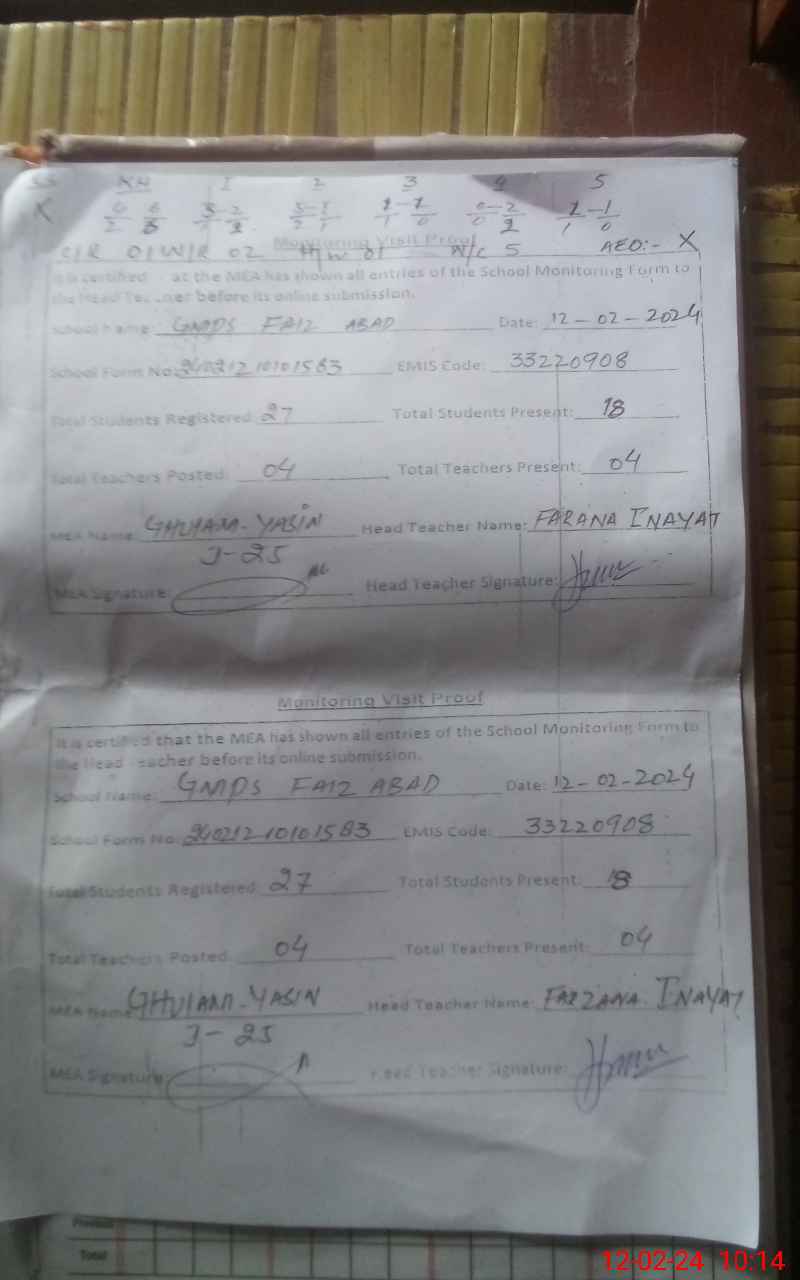 KH 1 2 3 4 5
C/R 01 W/R 02 H/W 01 N/C 5 AEO:- X
Monitoring Visit Proof
It is certified at the MEA has shown all entries of the School Monitoring Form to
the Head Teacher before its online submission.
School Name: GMPS FAIZ ABAD Date: 12-02-2024
School Form No: 24021210101583 EMIS Code: 33220908
Total Students Registered: 27 Total Students Present: 18
Total Teachers Posted: 04 Total Teachers Present: 04
MEA Name: GHULAM-YASIN Head Teacher Name: FARANA INAYAT
J-25
MEA Signature: Head Teacher Signature:
Monitoring Visit Proof
It is certified that the MEA has shown all entries of the School Monitoring Form to
the Head Teacher before its online submission.
School Name: GMPS FAIZ ABAD Date: 12-02-2024
School Form No: 24021210101583 EMIS Code: 33220908
Total Students Registered: 27 Total Students Present: 18
Total Teachers Posted: 04 Total Teachers Present: 04
MEA Name: GHULAM-YASIN Head Teacher Name: FARZANA INAYAT
J-25
MEA Signature: Head Teacher Signature:
Present
Total
12-02-24 10:14